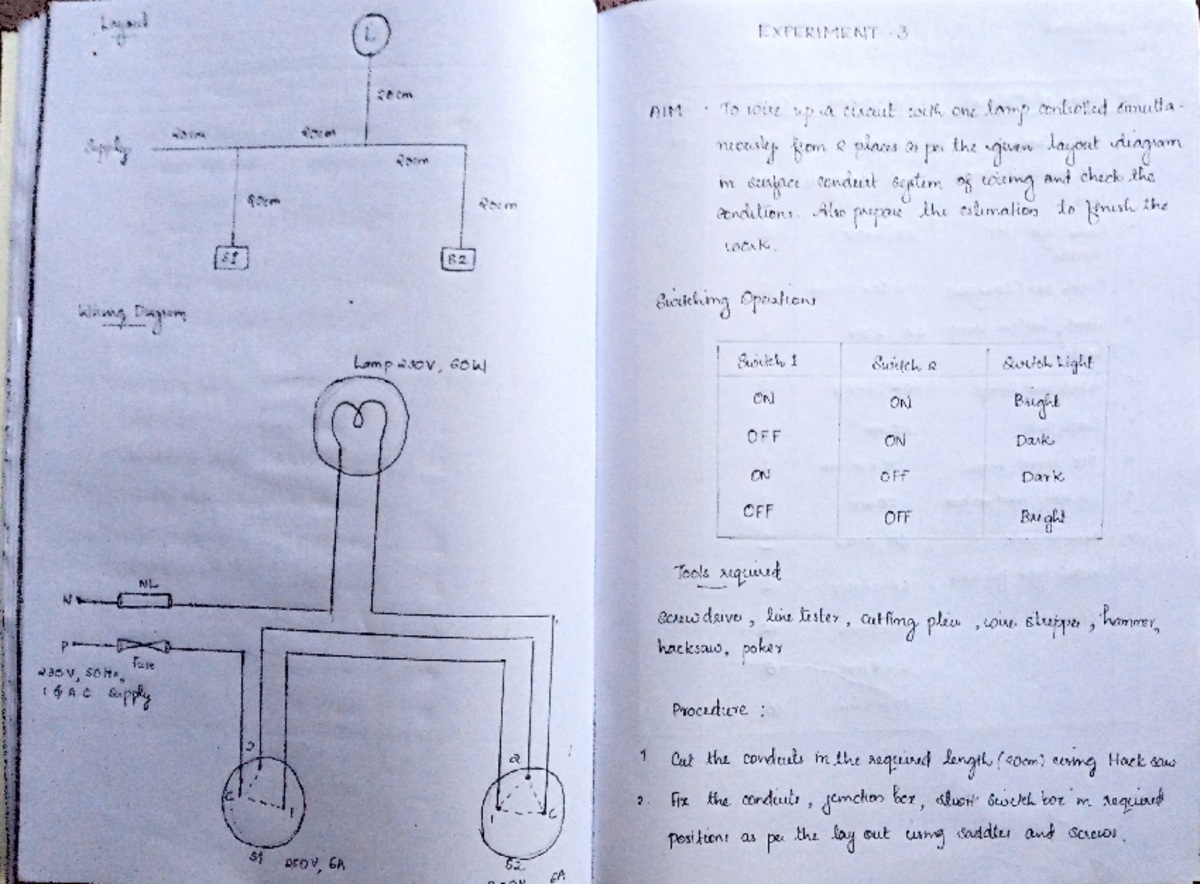 Layout
L
20cm
Supply
20cm
20cm
20cm
20cm
20cm
S1
S2
Wiring Diagram
Lamp 230V, 60W
NL
N
P
Fuse
230V, 50Hz,
1 φ A C Supply
2
C
1
S1 250V, 6A
2
1
C
S2
6A
EXPERIMENT - 3
AIM : To wire up a circuit with one lamp controlled simulta-
neously from 2 places as per the given layout diagram
in surface conduit system of wiring and check the
conditions. Also prepare the estimation to finish the
work.
Switching Operations
Switch 1 Switch 2 Switch Light
ON ON Bright
OFF ON Dark
ON OFF Dark
OFF OFF Bright
Tools required
Screw driver, line tester, cutting plier, wire stripper, hammer,
hacksaw, poker
Procedure :
1 Cut the conduits in the required length (20cm) using Hack saw
2. Fix the conduits, junction box, switch box in required
positions as per the lay out using saddles and screws.